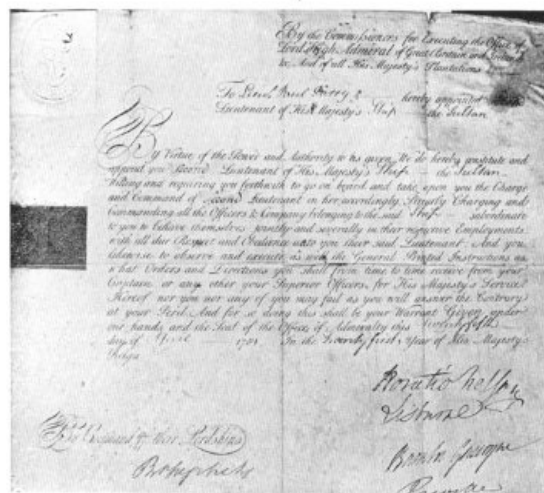 By the Commissioners for Executing the Office of
Lord High Admiral of Great Britain and Ireland
&c. And of all His Majesty's Plantations
To Lieut. Paul hereby appointed
Lieutenant of His Majesty's Ship the Sultan
By Virtue of the Power and Authority to us given We do hereby constitute and
appoint you Second Lieutenant of His Majesty's Ship the Sultan
Willing and requiring you forthwith to go on board and take upon you the Charge
and Command of Second Lieutenant in her accordingly. Strictly Charging and
Commanding all the Officers & Company belonging to the said Ship subordinate
to you to behave themselves jointly and severally in their respective Employments
with all due Respect and Obedience unto you their said Lieutenant And you
likewise to observe and execute as well the General Printed Instructions as
what Orders and Directions you shall from time to time receive from your
Captain or any other your Superior Officers for His Majesty's Service
Hereof nor you nor any of you may fail as you will answer the Contrary
at your Peril And for so doing this shall be your Warrant Given under
our hands and the Seal of the Office of Admiralty this
day of April 1781 In the Twenty first Year of His Majesty's
Reign
Lisburne
By Command of their Lordships